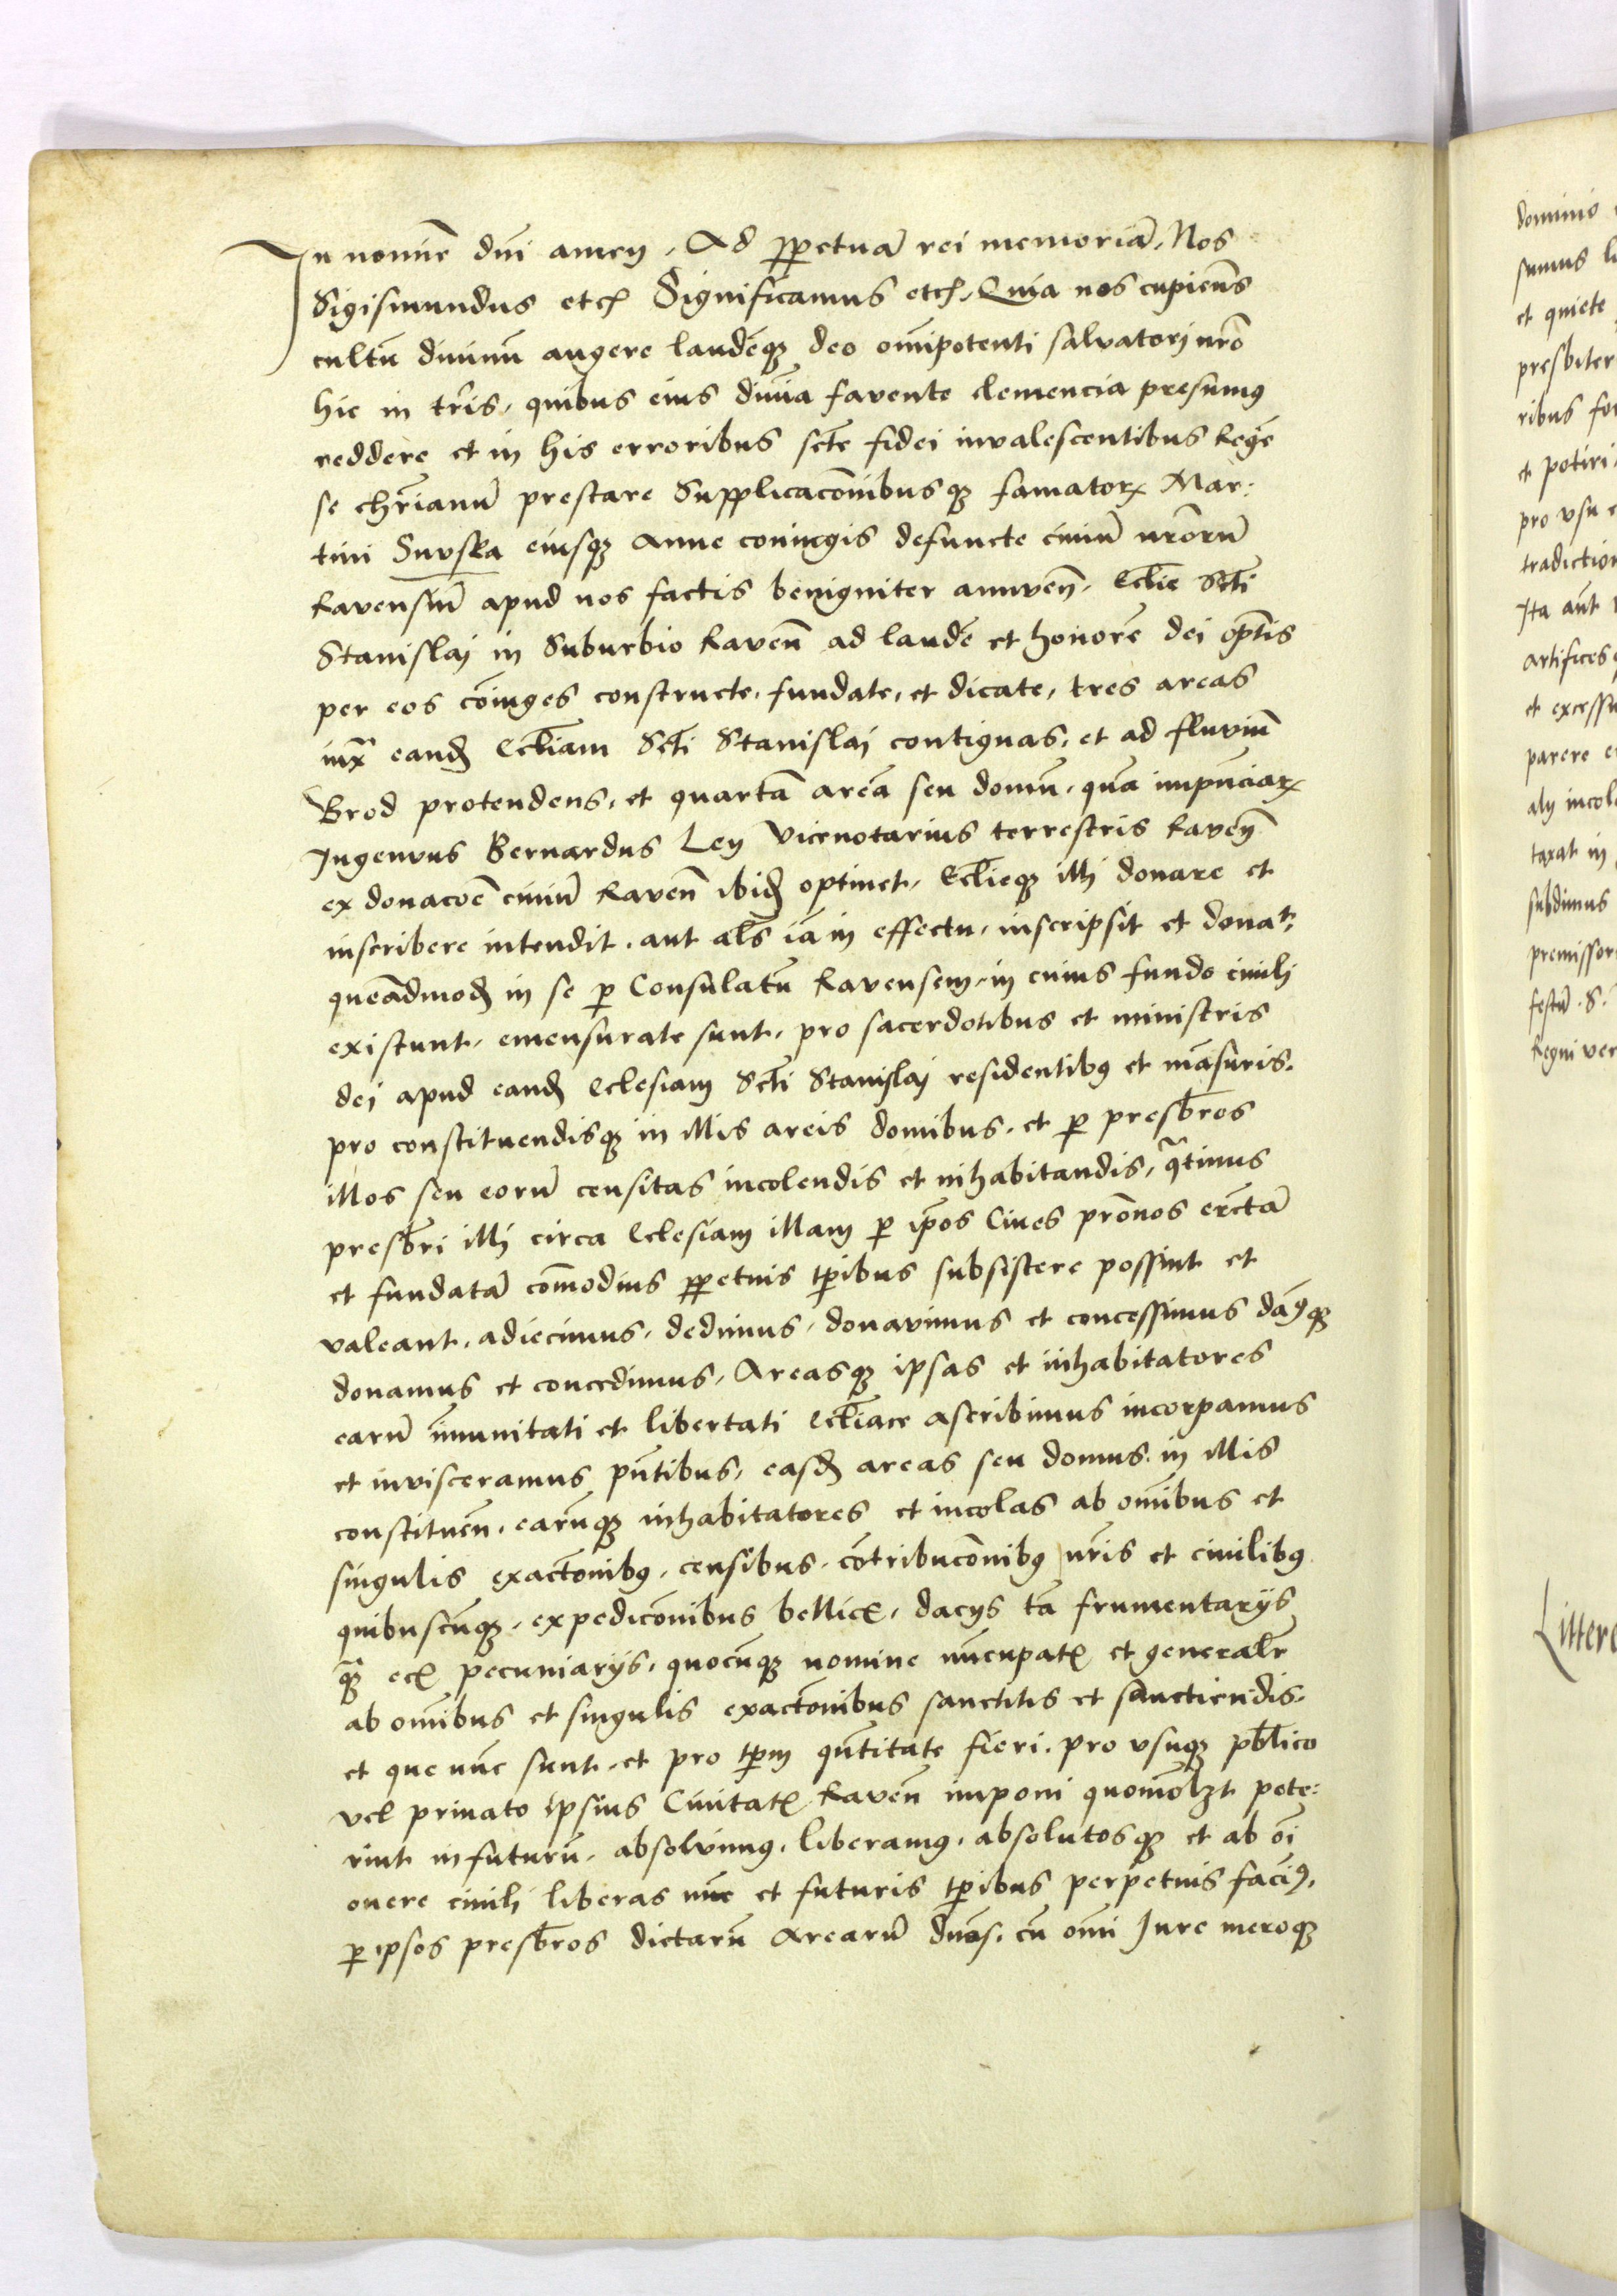 In nomine dni amen, Ad ppetuã rei memoriã, Nos
Sigismundus etc Significamus etc, Quia nos cupiens
cultũ diuinũ augere laudẽq deo omipotenti saluatori nro
hic in tris, quibus eius diuina favente clemencia presumus
reddere et in his erroribus scte fidei invalescentibus Regẽ
se chrianũ prestare Supplicaconibusq famator Mar:
tini Suvska eiusq Anne coniugis defuncte ciuiũ nrorũ
Ravensiũ apud nos factis benigniter annuen, Eclie Scti
Stanislaj in Suburbio Raven ad laudẽ et honorẽ dei optis
per eos cõiuges constructe, fundate, et dicate, tres areas
iuxa eand Ecliam Scti Stanislaj contiguas, et ad fluviũ
Brod protendens, et quartã areã seu domũ, quã impnciar
Ingenuus Bernardus Leŋ Vicenotarius terrestris Raven
ex donacoe ciuiũ Raven ibid optinet, Eclieq illi donare et
inscribere intendit, aut als iã in effectu, inscripsit et donat,
queadmod in se p Consulatũ Ravensem, in cuius fundo ciuili
existunt, emensurate sunt, pro sacerdotibus et ministris
dei apud eand Eclesiam Scti Stanislaj residentibus et mãsuris,
pro constituendisq in illis areis domibus, et p presbros
illos seu eorũ censitas incolendis et inhabitandis, qatinus
presbri illi circa Eclesiam illam p ipos Ciues pronos erectã
et fundatã comodius ppetuis tpibus subsistere possint et
valeant, adiecimus, dedimus, donavimus et concessimus damusq
donamus et concedimus, Areasq ipsas et inhabitatores
earũ imunitati et libertati Ecliace ascribimus incorpamus
et invisceramus pntibus, easd areas seu domus in illis
constituen, earũq inhabitatores et incolas ab omibus et
singulis exactonibus, censibus, cõtribuconibus nris et ciuilibus
quibuscũq, expediconibus bellic, dacijs tã frumentarijs
qa ec pecuniarijs, quocũq nomine nũcupat et generalr
ab omibus et singulis exactonibus sanctitis et sanctiendis,
et que nũc sunt, et pro tpm qntitate fieri, pro usuq pblico
vel priuato ipsius Ciuitat Raven imponi quomolzt pote:
rint in futurũ, absoluimus, liberamus, absolutosq et ab oi
onere ciuili liberas nũc et futuris tpibus perpetuis facimus,
p ipsos presbros dictarũ Arearũ dnos, cũ omi Jure meroq
dominio
sumus
et quiete
presbiter
ribus
et potiri
pro usu
tradiction
Ita aut
artifices
et excessu
parere
alij incol
taxat in
subdimus
premissor
festũ S.
Regni ver
Littere